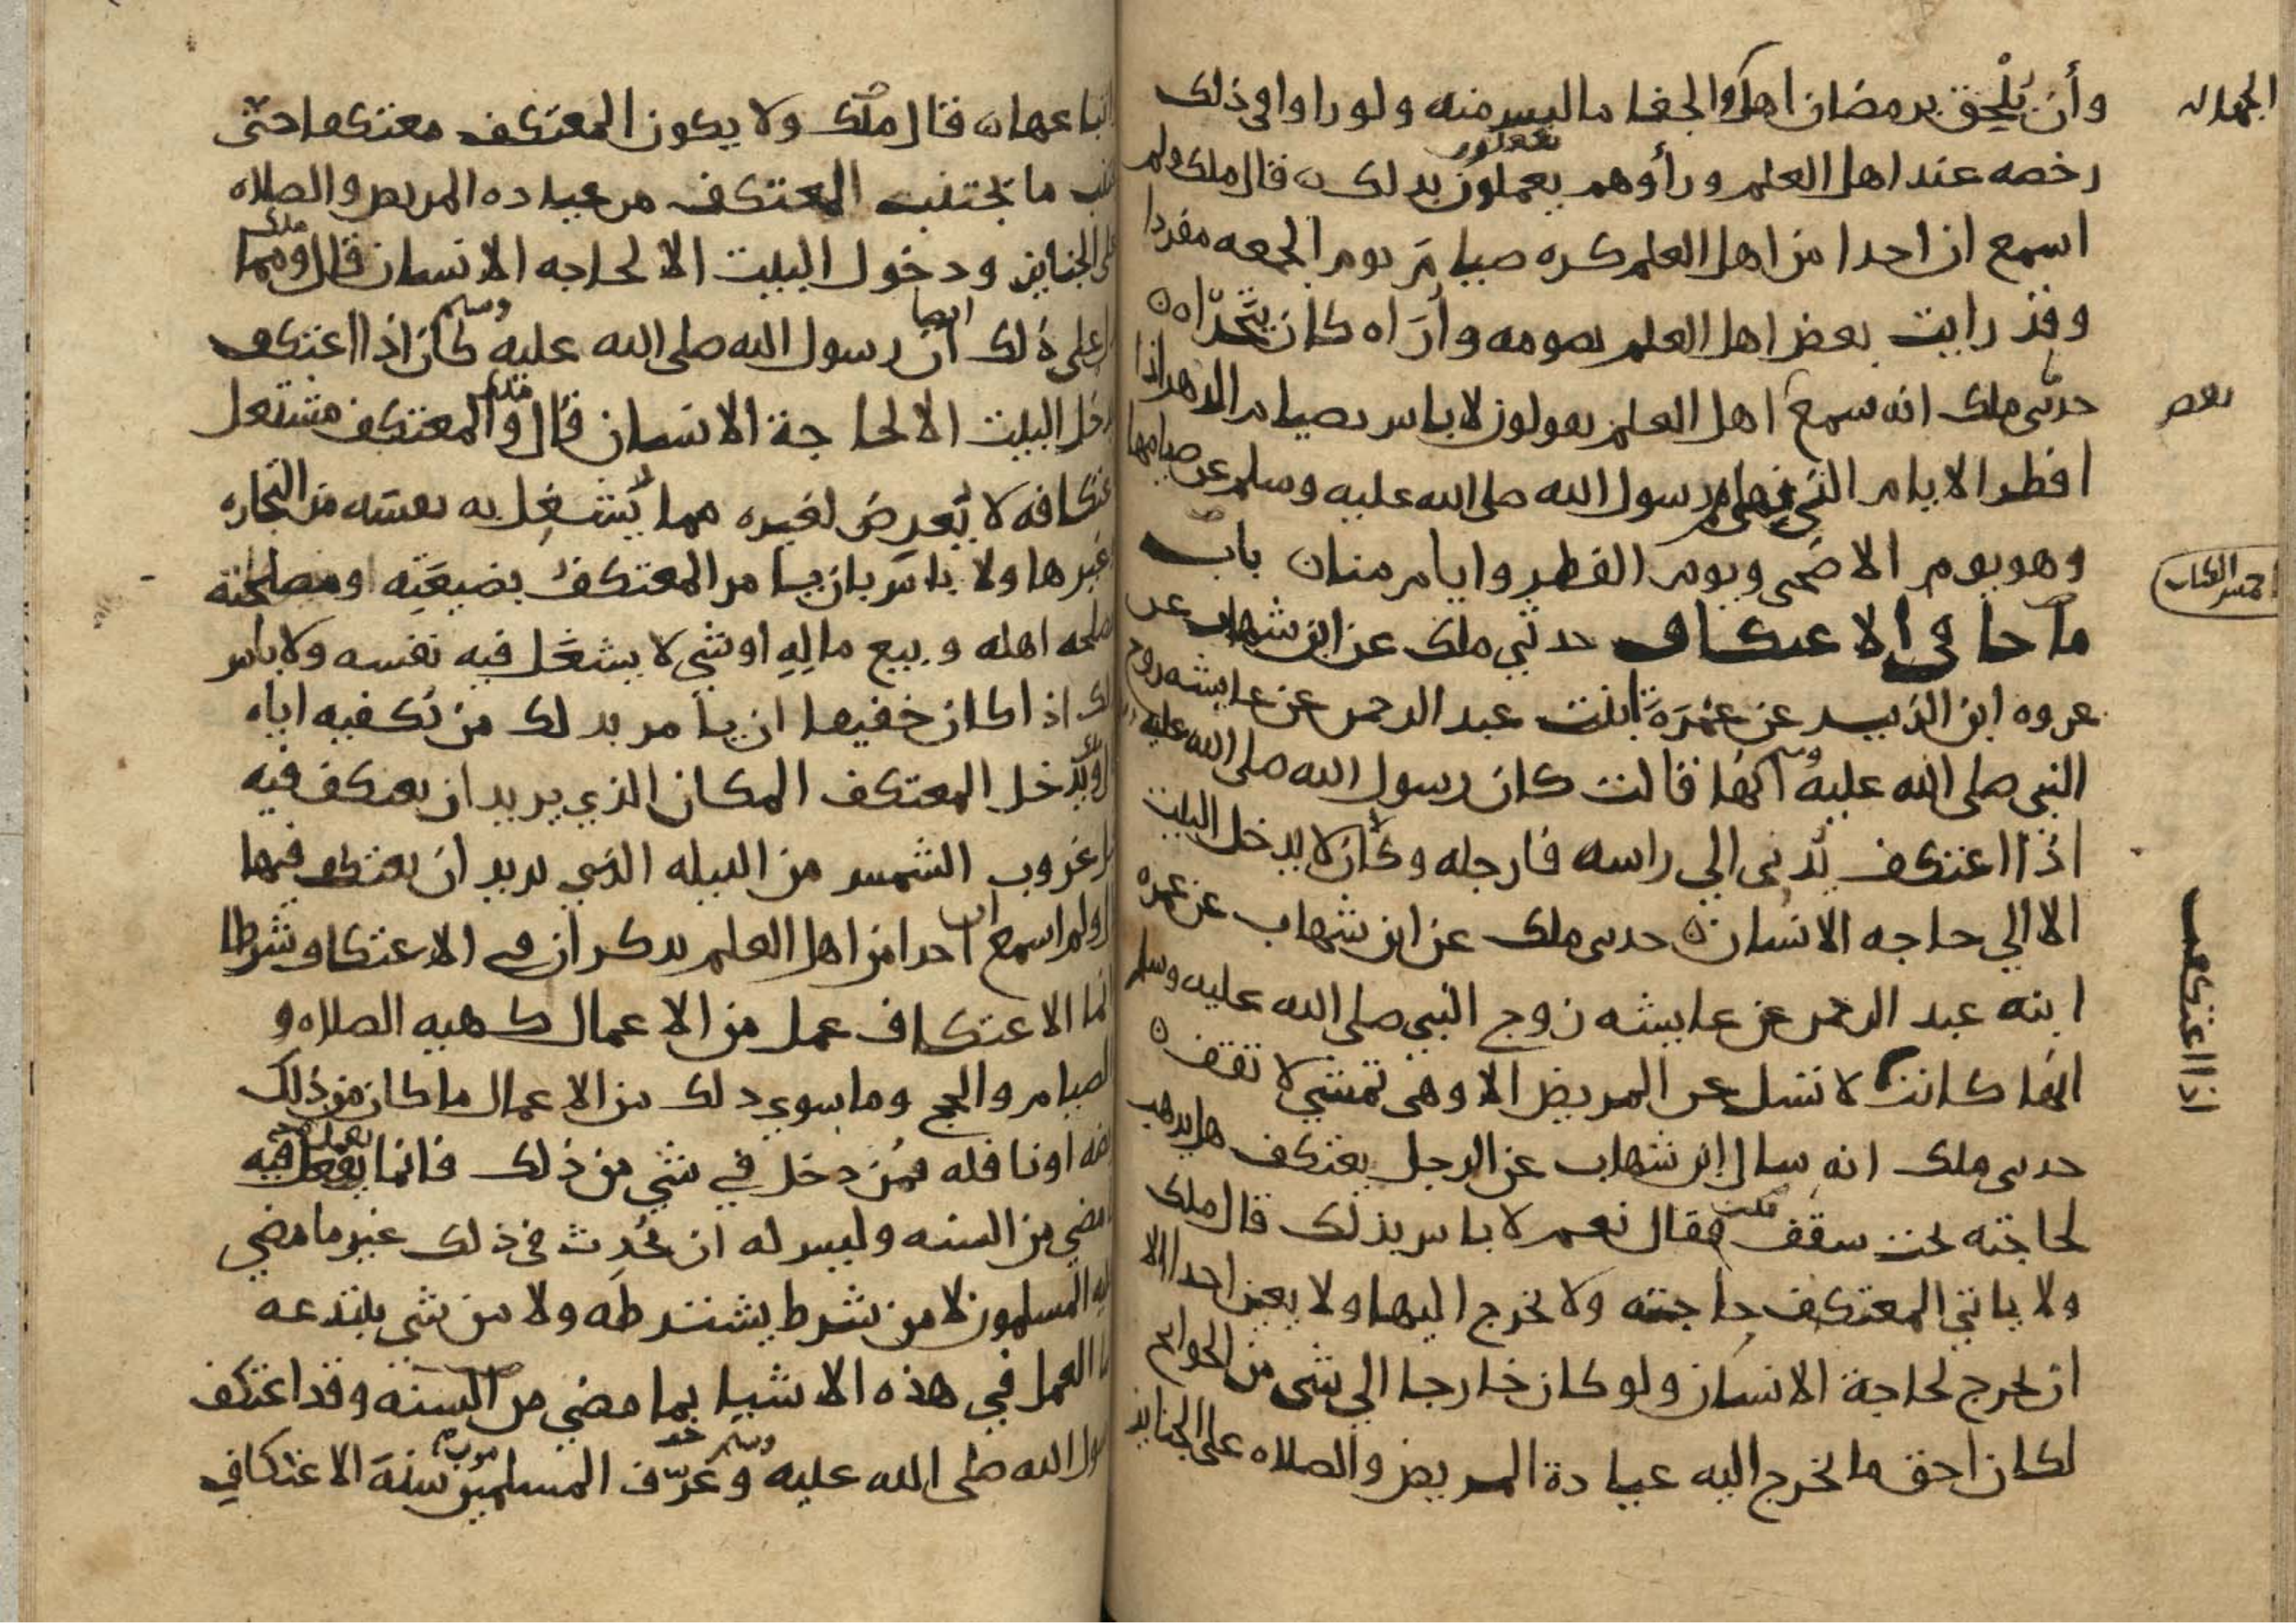 وأن يُلحق برمضان اهل الجفا ما ليس منه ولو راوا في ذلك
الجهاله
رخصه عند اهل العلم ورأوهم يعملون بذلك ه قال ملك ولم
اسمع ان احدا من اهل العلم كره صيام يوم الجمعه مفردا
وقد رايت بعض اهل العلم يصومه وأُرَاه كان يتحرّاه ه
حدثني ملك انه سمع اهل العلم يقولون لا باس بصيام الدهر اذا
بعض
افطر الايام التي نهى رسول الله صلى الله عليه وسلم عن صيامها
وهو يوم الاضحى ويوم الفطر وايام منا ن باب
ما جا في الاعتكاف حدثني ملك عن ابن شهاب عن
عروه ابن الزبير عن عَمْرَة ابنت عبد الرحمن عن عايشه زوج
النبي صلى الله عليه وسلم انها قالت كان رسول الله صلى الله عليه
اذا اعتكف يُدني الي راسه فارجله وكان لا يدخل البيت
الا الي حاجه الانسان ه حدثني ملك عن ابن شهاب عن عمره
ابنه عبد الرحمن عن عايشه زوج النبي صلى الله عليه وسلم
اذا اعتكفت
انها كانت لا تسل عن المريض الا وهي تمشي لا تقف ه
حدثني ملك انه سال ابن شهاب عن الرجل يعتكف هل يذهب
لحاجته تحت سقف فقال نعم لا باس بذلك قال ملك
ولا ياتي المعتكف حاجته ولا يخرج اليها ولا يعين احدا الا
ان يخرج لحاجة الانسان ولو كان خارجا الي شي من الحوايج
لكان احق ما يخرج اليه عيادة المريض والصلاه على الجنايز
اتباعها ه قال ملك ولا يكون المعتكف معتكفا حتّى
ما يجتنب المعتكف من عياده المريض والصلاه
على الجنايز ودخول البيت الا لحاجه الانسان قال ملك ومما
على ذلك ايضا ان رسول الله صلى الله عليه وسلم كان اذا اعتكف
يدخل البيت الا لحاجة الانسان قال والمعتكف مشتغل
لا يَعرِض لغيره مما يَشتغِل به نفسَه من التجاره
غيرها ولا باس بان يامر المعتكفُ بضيعَتِه ومصلحته
اهله وبيع مالِهِ او شي لا يشغَل فيه نفسه ولا باس
اذا كان خفيفا ان يامر بذلك من يكفيه اياه
ويَدخل المعتكف المكان الذي يريد ان يعتكف فيه
غروب الشمس من الليله التي يريد ان يعتكف فيها
ولم اسمع احدا من اهل العلم يذكر ان في الاعتكاف شرطا
انما الاعتكاف عمل من الاعمال كهيه الصلاه و
الصيام والحج وما سوى ذلك من الاعمال ما كان من ذلك
او نافله فمن دخل في شي من ذلك فانما يعمل فيه
مضي من السنه وليس له ان يُحدِث في ذلك غير ما مضي
المسلمون لا من شرط يشترطه ولا من شي يبتدعه
العمل في هذه الاشيا بما مضي من السنه وقد اعتكف
رسول الله صلى الله عليه وسلم وعَرّف المسلمين سنةَ الاعتكافِ